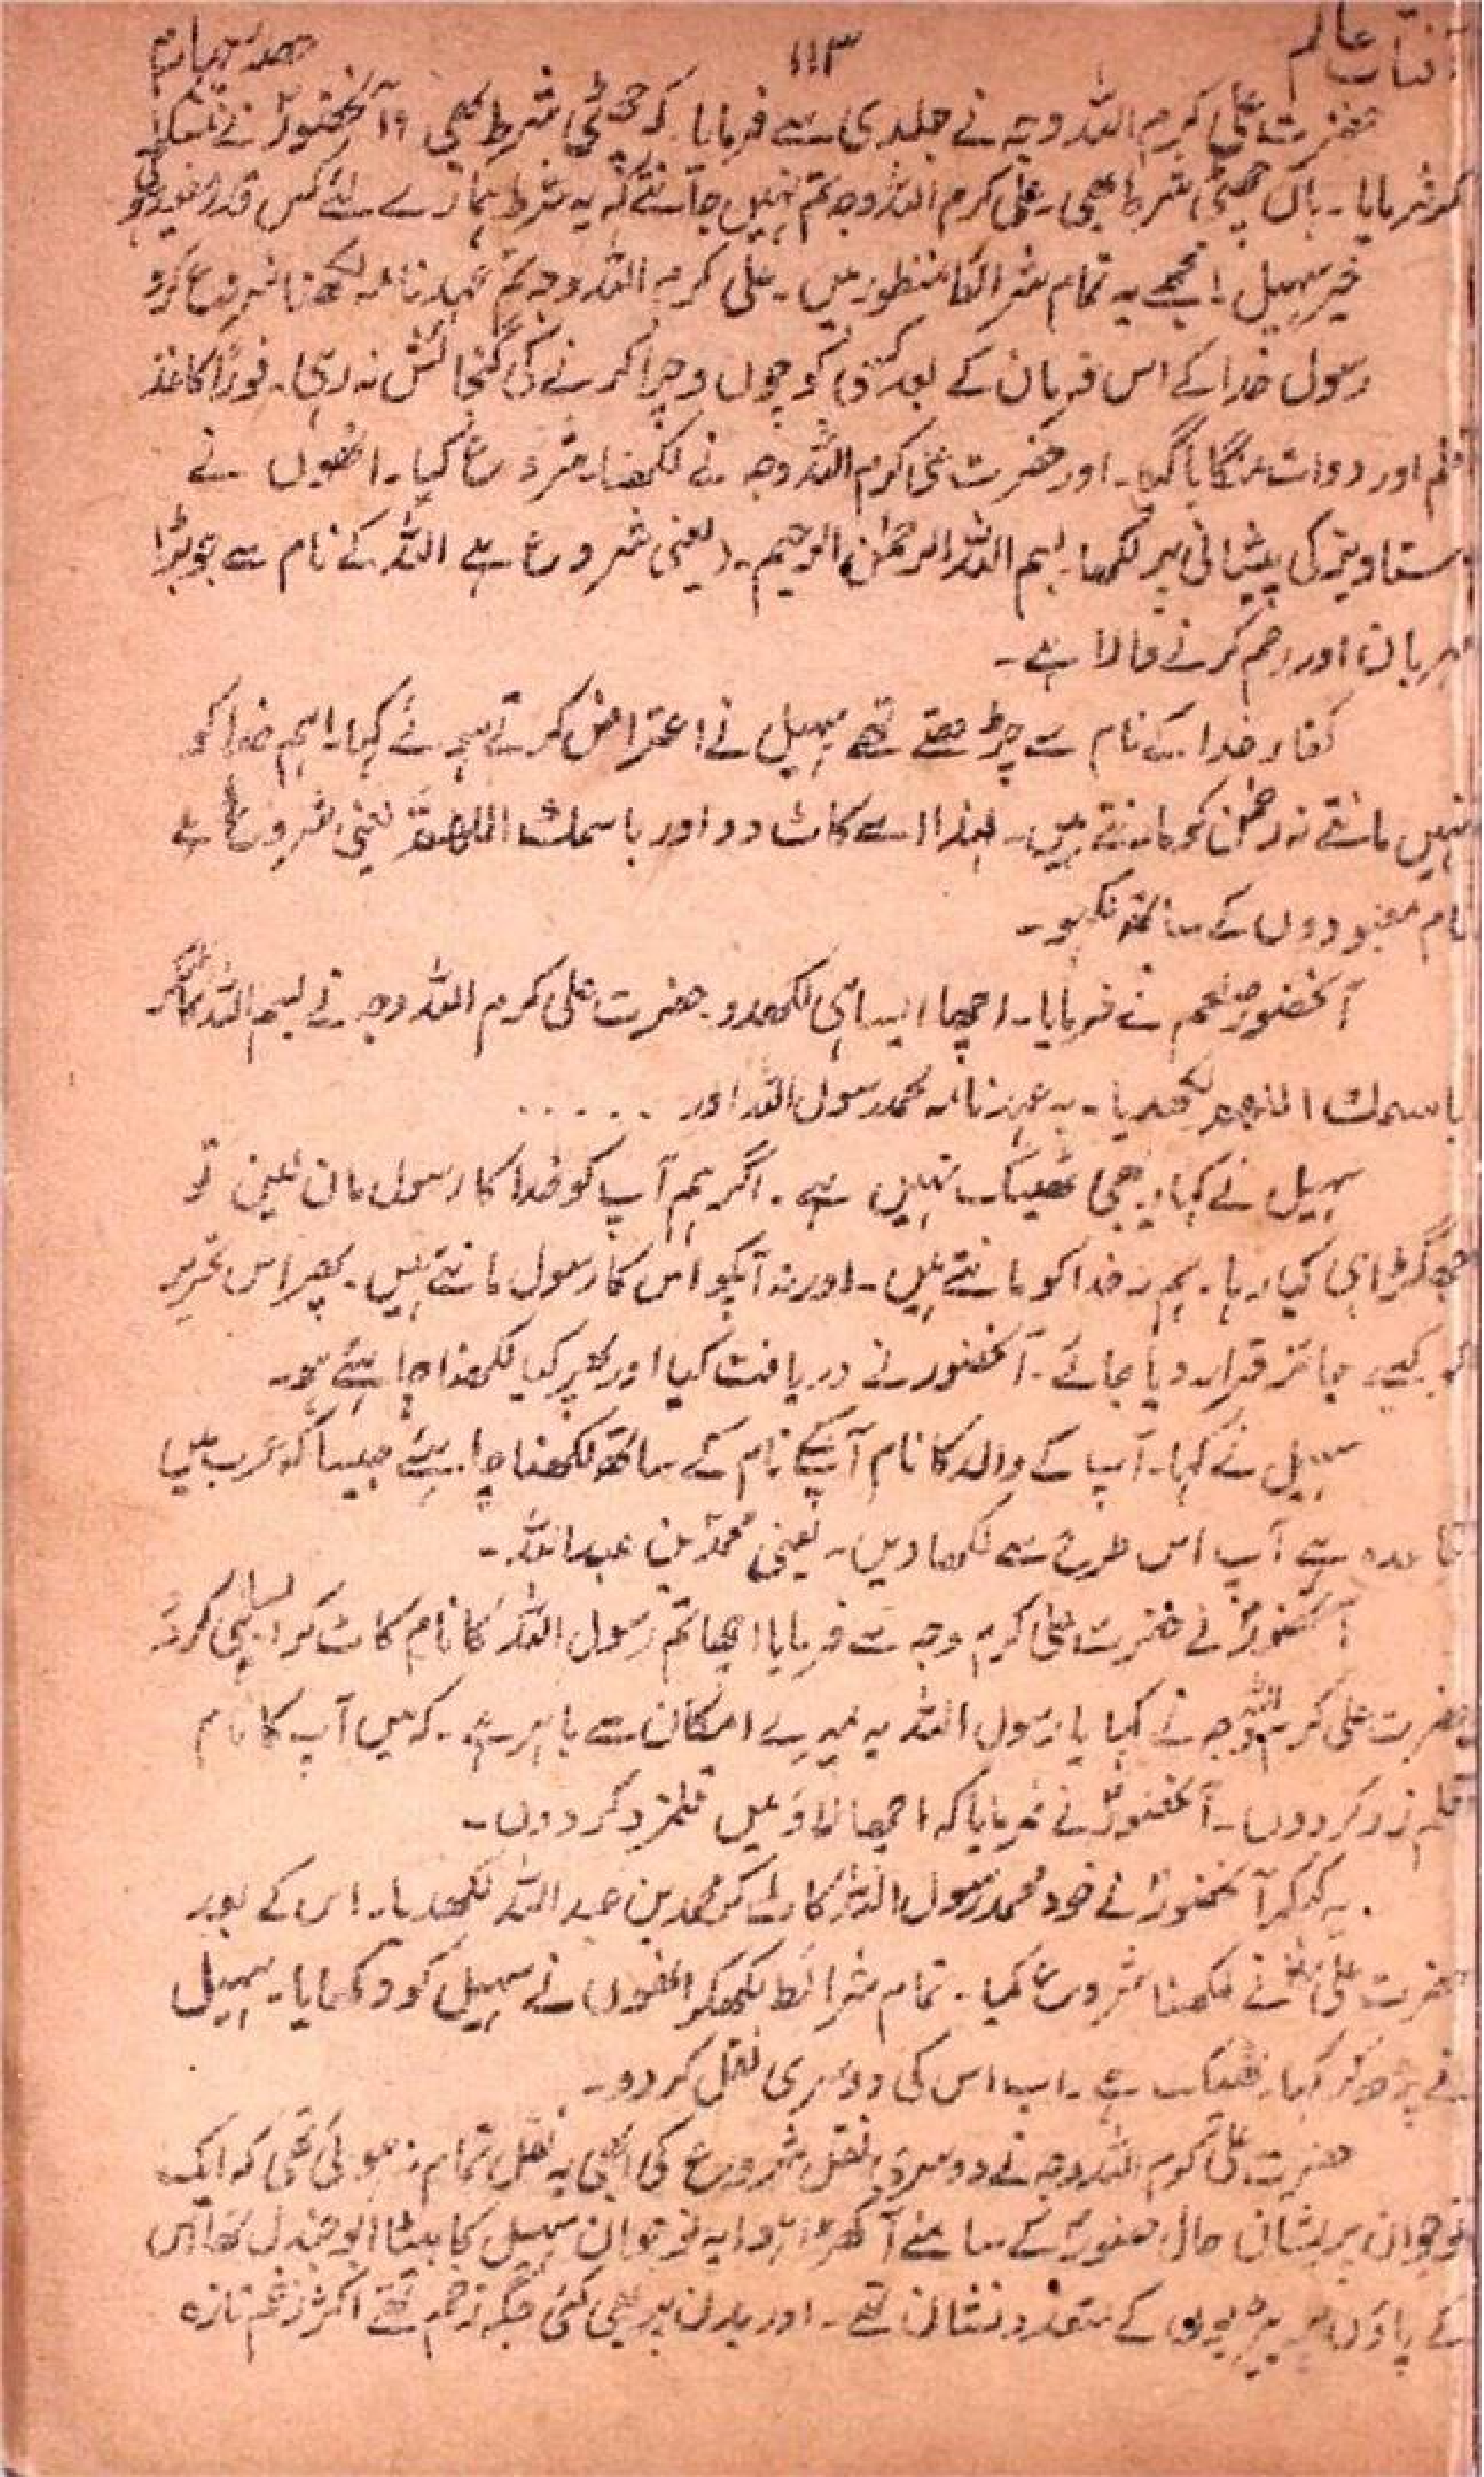 آفتاب عالم ۱۱۳ حصہ چہارم
حضرت علی کرم اللہ وجہ نے جلدی سے فرمایا۔ کہ چھٹی شرط بھی؟ آنحضورؐ نے تسکین
کو فرمایا۔ ہاں چھٹی شرط بھی۔ علی کرم اللہ وجہ تم نہیں جانتے کہ یہ شرط ہمارے لئے کس قدر مفید ہوگی
خیر سہیل! مجھے یہ تمام شرائط منظور ہیں۔ علی کرم اللہ وجہ تم عہد نامہ لکھنا شروع کرو
رسول خدا کے اس فرمان کے بعد کسی کو چوں و چرا کرنے کی گنجائش نہ رہی۔ فوراً کاغذ
قلم اور دوات منگایا گیا۔ اور حضرت علی کرم اللہ وجہ نے لکھنا شروع کیا۔ انھوں نے
دستاویز کی پیشانی پر لکھا۔ بسم اللہ الرحمٰن الرحیم۔ (یعنی شروع ہے اللہ کے نام سے جو بڑا
مہربان اور رحم کرنے والا ہے۔
کفار خدا کے نام سے چڑھتے تھے سہیل نے اعتراض کرتے ہوئے کہا۔ ہم خدا کو
نہیں مانتے نہ رحمٰن کو مانتے ہیں۔ لہٰذا اسے کاٹ دو اور باسمک اللھم یعنی شروع ہے
نام معبودوں کے ساتھ لکھو۔
آنحضور صلعم نے فرمایا۔ اچھا ایسا ہی لکھدو۔ حضرت علی کرم اللہ وجہ نے بسم اللہ کاٹکر
باسمک اللھم لکھدیا۔ یہ عہد نامہ محمد رسول اللہ اور ۔۔۔۔۔
سہیل نے کہا یہ بھی ٹھیک نہیں ہے۔ اگر ہم آپ کو خدا کا رسول مان لیں تو
جھگڑا ہی کیا رہا۔ ہم نہ خدا کو مانتے ہیں۔ اور نہ آپکو اس کا رسول مانتے ہیں۔ پھر اس تحریر
کو کیسے جائز قرار دیا جائے۔ آنحضور نے دریافت کیا اور پھر کیا لکھنا چاہئے ہو۔
سہیل نے کہا۔ آپ کے والد کا نام آپکے نام کے ساتھ لکھنا چاہئے جیسا کہ عرب میں
قاعدہ ہے آپ اس طرح سے لکھا دیں۔ یعنی محمدؐ بن عبداللہ۔
آنحضورؐ نے حضرت علی کرم وجہ سے فرمایا اچھا تم رسول اللہ کا نام کاٹ کر ایسا ہی کردو
حضرت علی کرم اللہ وجہ نے کہا یا رسول اللہ یہ میرے امکان سے باہر ہے۔ کہ میں آپ کا نام
قلم زد کردوں۔ آنحضورؐ نے فرمایا کہ اچھا لاؤ میں قلمزد کردوں۔
یہ کہکر آنحضورؐ نے خود محمد رسول اللہ کاٹ کر محمد بن عبد اللہ لکھدیا۔ اس کے بعد
حضرت علیؓ نے لکھنا شروع کیا۔ تمام شرائط لکھکر انھوں نے سہیل کو دکھایا۔ سہیل
نے پڑھ کر کہا۔ ٹھیک ہے۔ اب اس کی دوسری نقل کردو۔
حضرت علی کرم اللہ وجہ نے دوسری نقل شروع کی ابھی یہ نقل تمام نہ ہوئی تھی کہ ایک
نوجوان پریشان حال حضورؐ کے سامنے آکھڑا ہوا یہ نوجوان سہیل کا بیٹا ابو جندل تھا اس
کے پاؤں میں بیڑیوں کے متعدد نشان تھے۔ اور بدن پر بھی کئی جگہ زخم تھے اکثر زخم تازہ